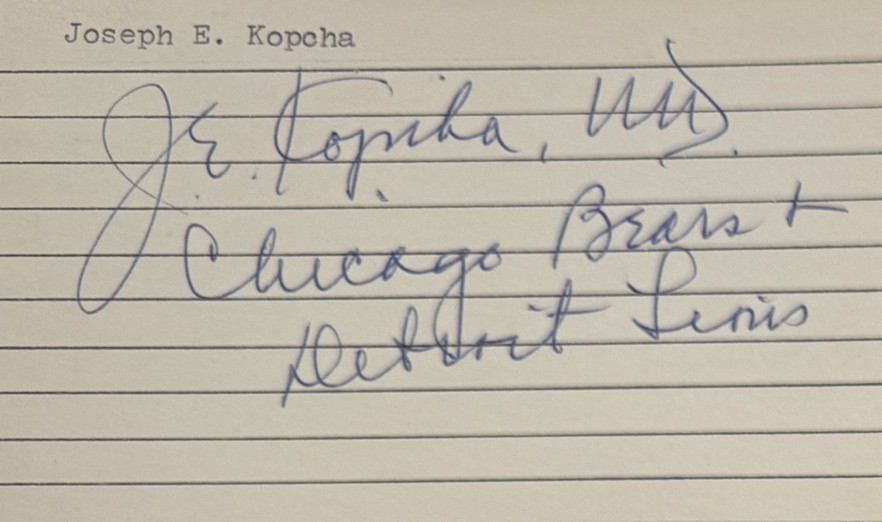 Joseph E. Kopcha
J. E. Kopcha, MD.
Chicago Bears +
Detroit Lions